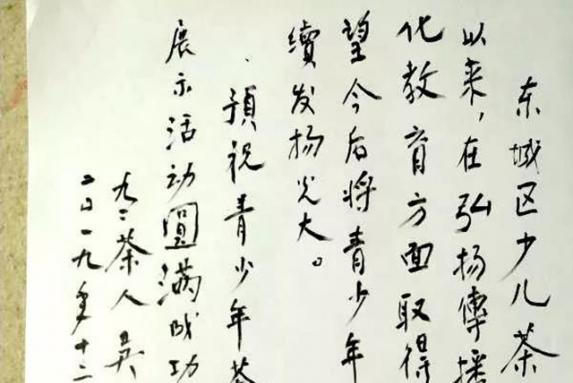 东城区少儿茶
以来，在弘扬傳播
化教育方面取得
望今后将青少年
續发扬光大。
預祝青少年茶
展示活动圓滿成功
九二茶人吴
二〇一九年十二